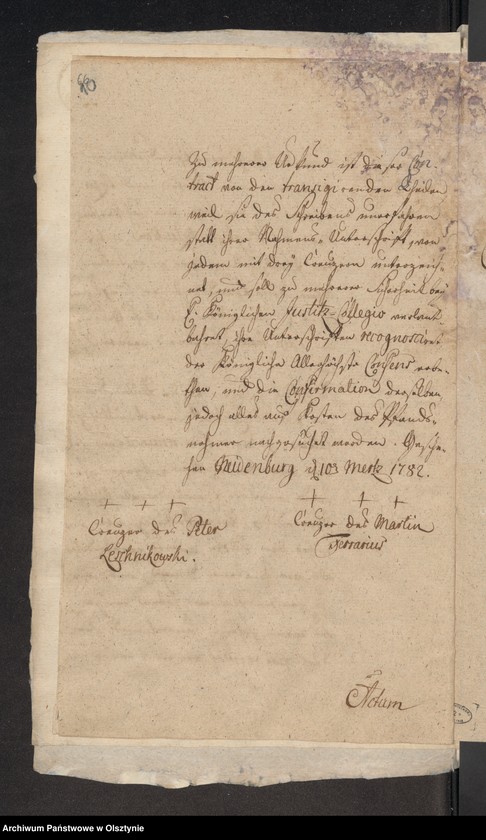 Zu mehrerer Urkund ist dieser Con-
tract von den transigirenden Theilen
weil sie des Schreibens unerfahren
statt ihrer Nahmens-Unterschrift, von
jedem mit drey Creutzern unterzeich-
net, und soll zu mehrerer Sicherheit bey
E. Königlichen Justitz-Collegio verlaut-
bahret, ihre Unterschriften recognosciret
der Königliche Allerhöchste Consens erbe-
then, und die Confirmation derselben
jedoch alles auf Kosten des Pfands-
nehmer nachgesuchet werden. Gesche-
hen Neidenburg d 10 Mertz 1782.
+ + + + + +
Creutzer des Peter
Leschnikowski.
Creutzer des Martin
Ferrarius
Actum
Archiwum Państwowe w Olsztynie